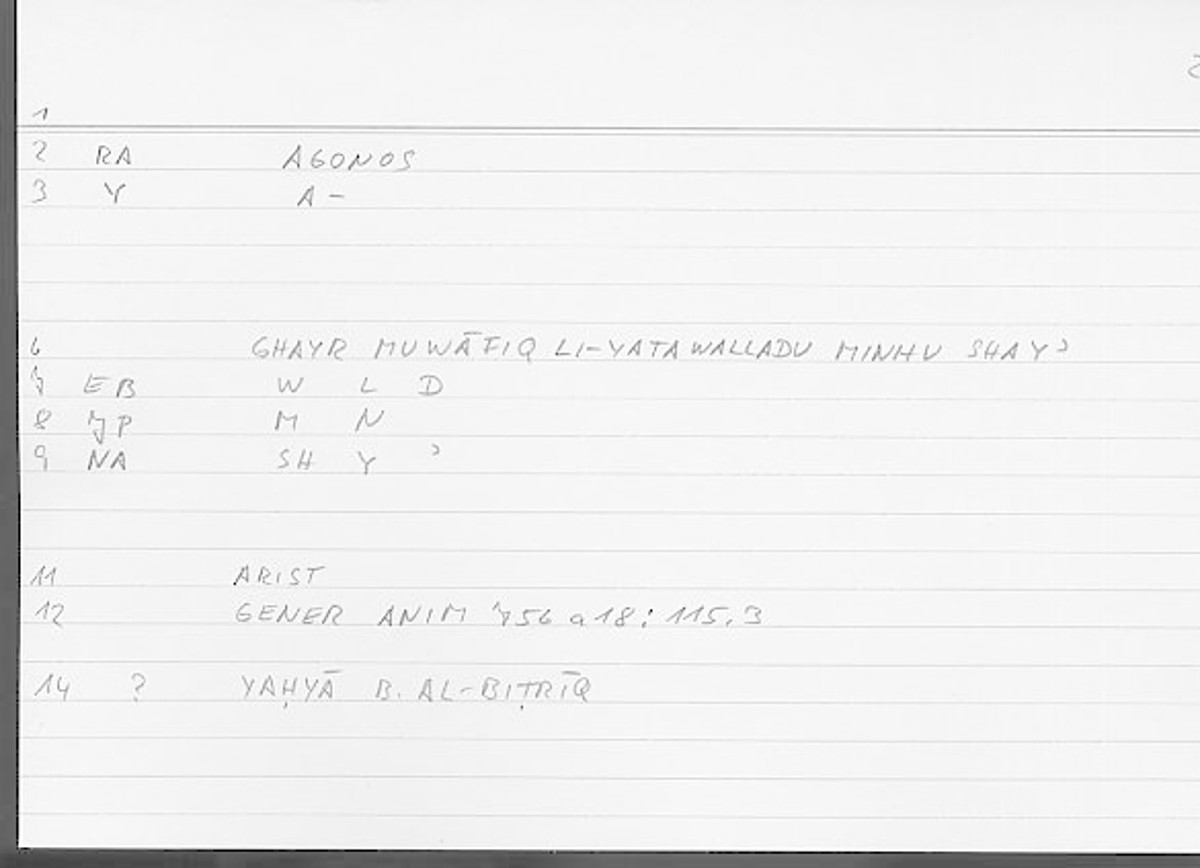 1
2 RA AGONOS
3 Y A-
6 GHAYR MUWĀFIQ LI-YATAWALLADU MINHU SHAYʾ
7 EB W L D
8 JP M N
9 NA SH Y ʾ
11 ARIST
12 GENER ANIM 756 a 18 : 115.3
14 ? YAḤYĀ B. AL-BIṬRĪQ